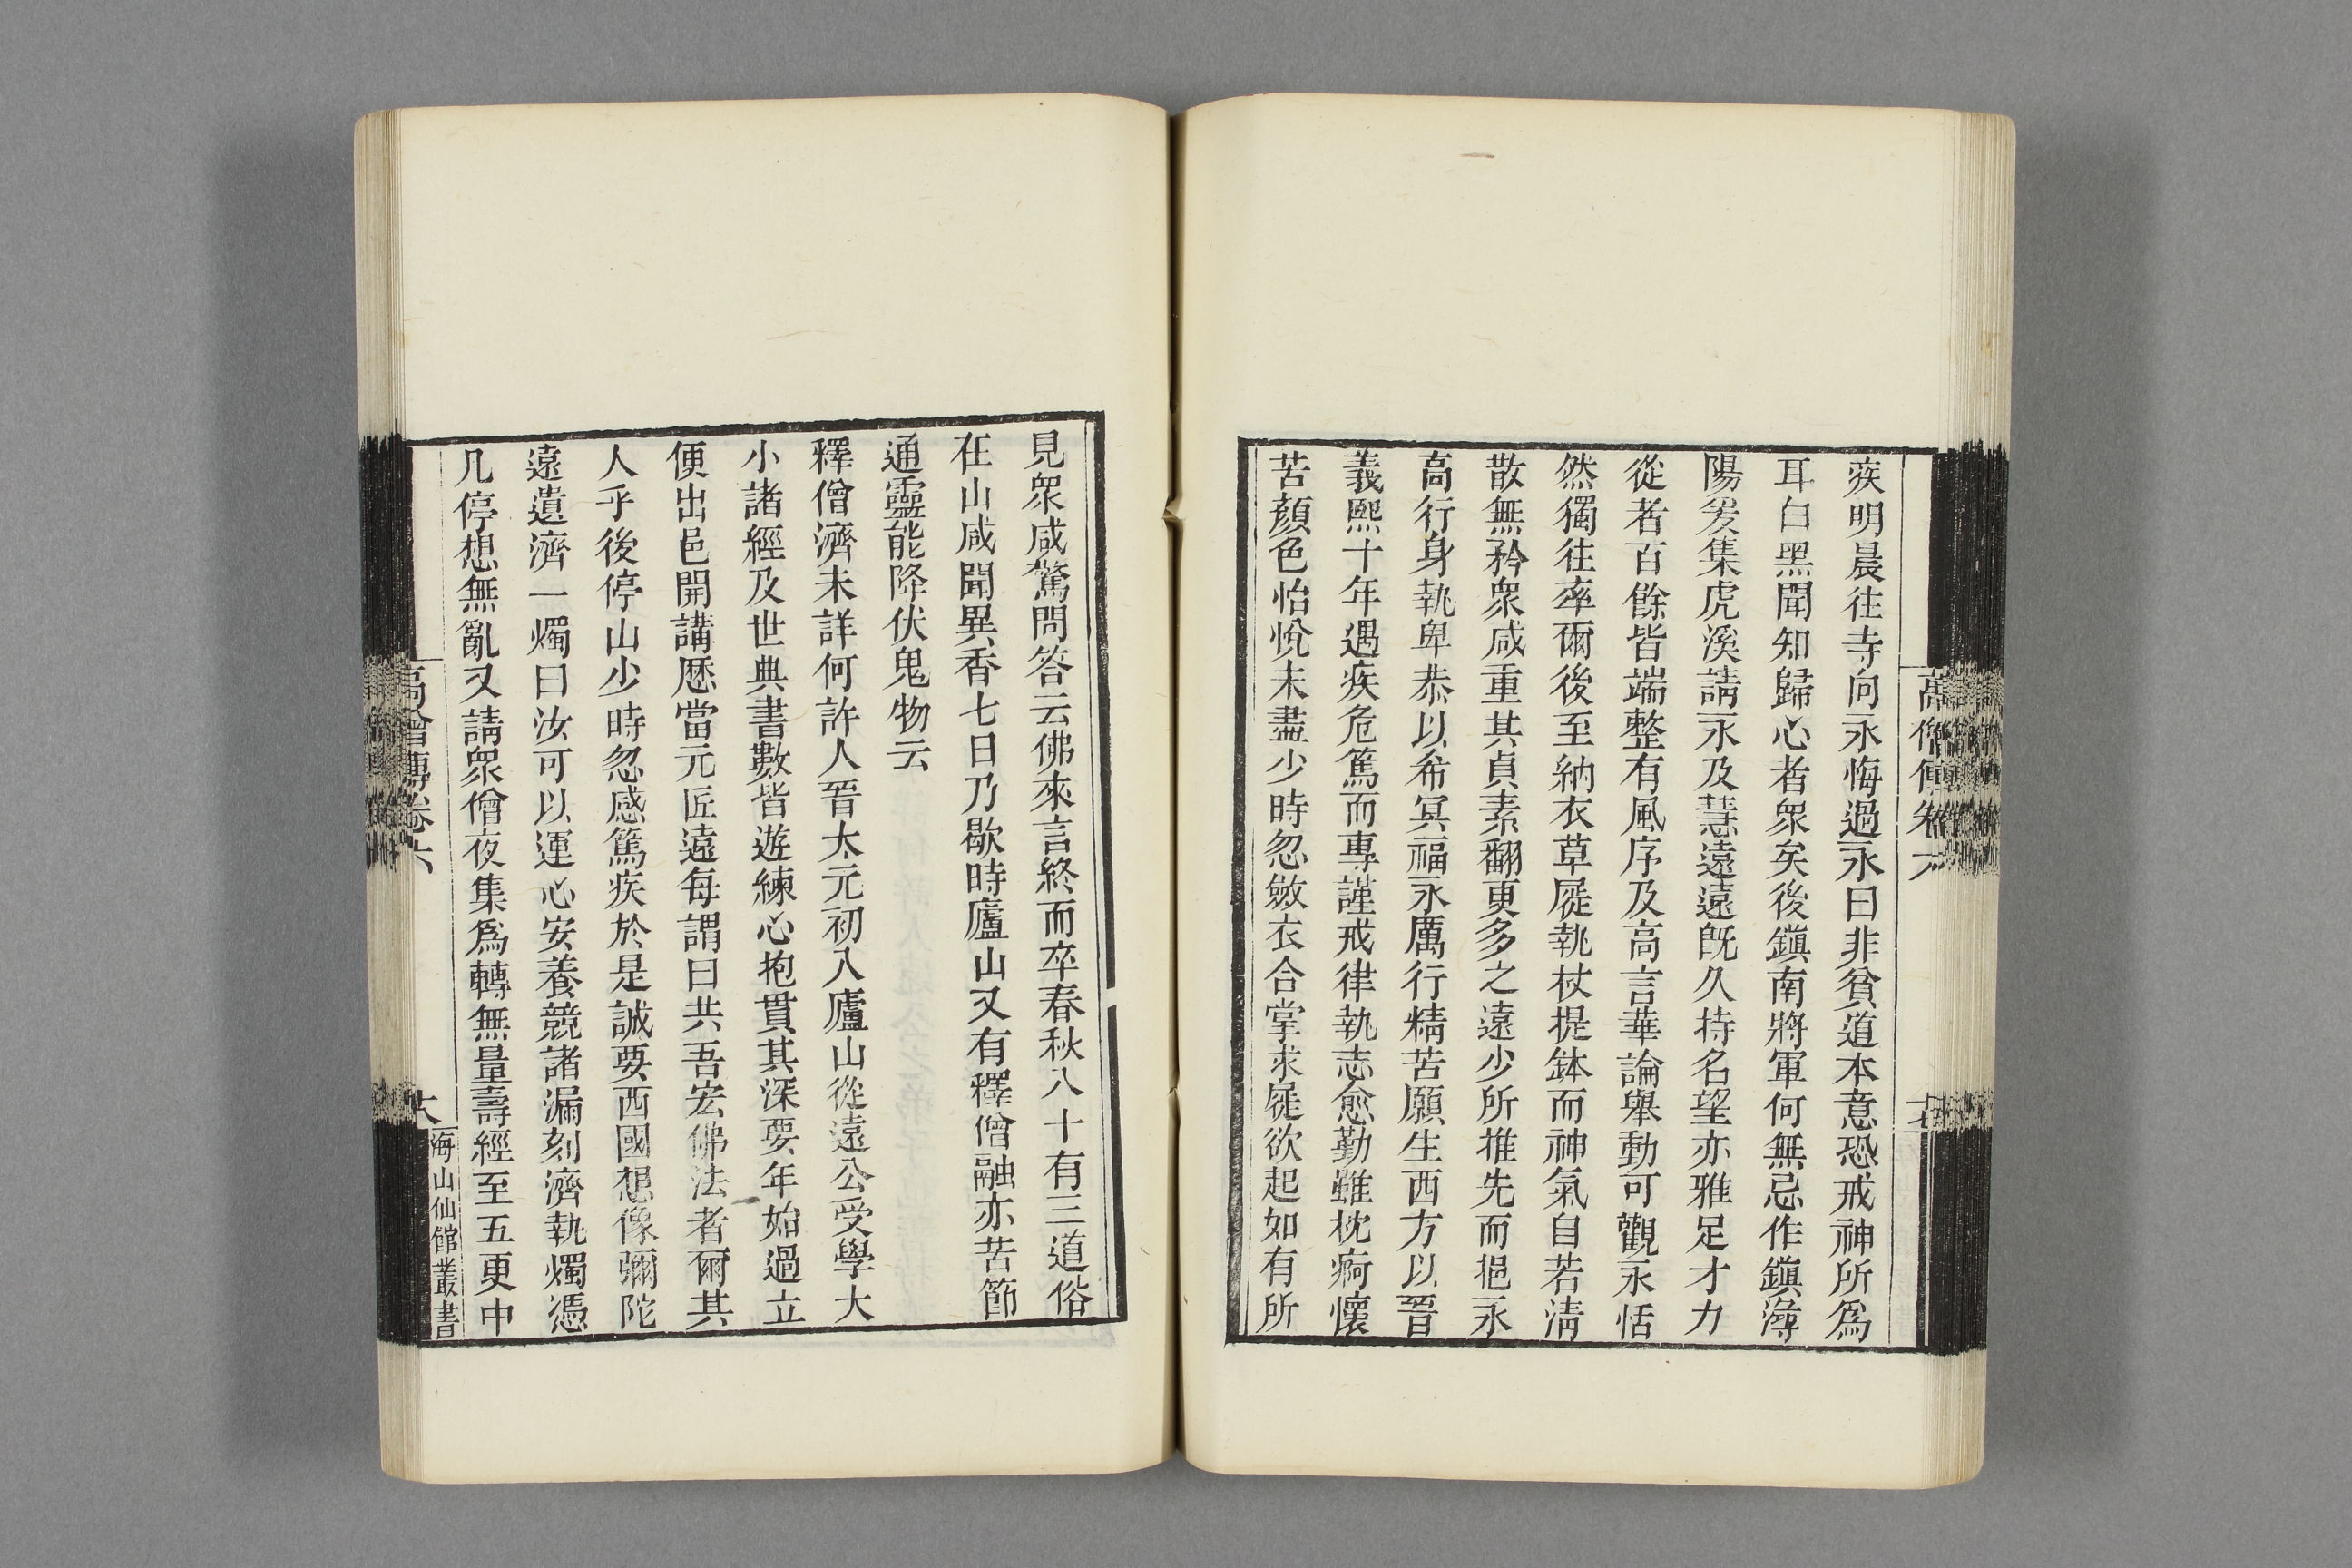 疾明晨往寺向永悔過永曰非貧道本意恐戒神所爲
耳白黑聞知歸心者衆矣後鎭南將軍何無忌作鎭潯
陽爰集虎溪請永及慧遠遠旣久持名望亦雅足才力
從者百餘皆端整有風序及高言華論舉動可觀永恬
然獨往率爾後至納衣草屣執杖提鉢而神氣自若淸
散無矜衆咸重其貞素翻更多之遠少所推先而挹永
高行身執卑恭以希冥福永厲行精苦願生西方以晉
義熙十年遇疾危篤而專謹戒律執志愈勤雖枕痾懷
苦顏色怡悅未盡少時忽斂衣合掌求屣欲起如有所
見衆咸驚問答云佛來言終而卒春秋八十有三道俗
在山咸聞異香七日乃歇時廬山又有釋僧融亦苦節
通靈能降伏鬼物云
釋僧濟未詳何許人晉太元初入廬山從遠公受學大
小諸經及世典書數皆遊練心抱貫其深要年始過立
便出邑開講歷當元匠遠每謂曰共吾宏佛法者爾其
人乎後停山少時忽感篤疾於是誠要西國想像彌陀
遠遺濟一燭曰汝可以運心安養競諸漏刻濟執燭憑
几停想無亂又請衆僧夜集爲轉無量壽經至五更中
高僧傳卷六
海山仙館叢書